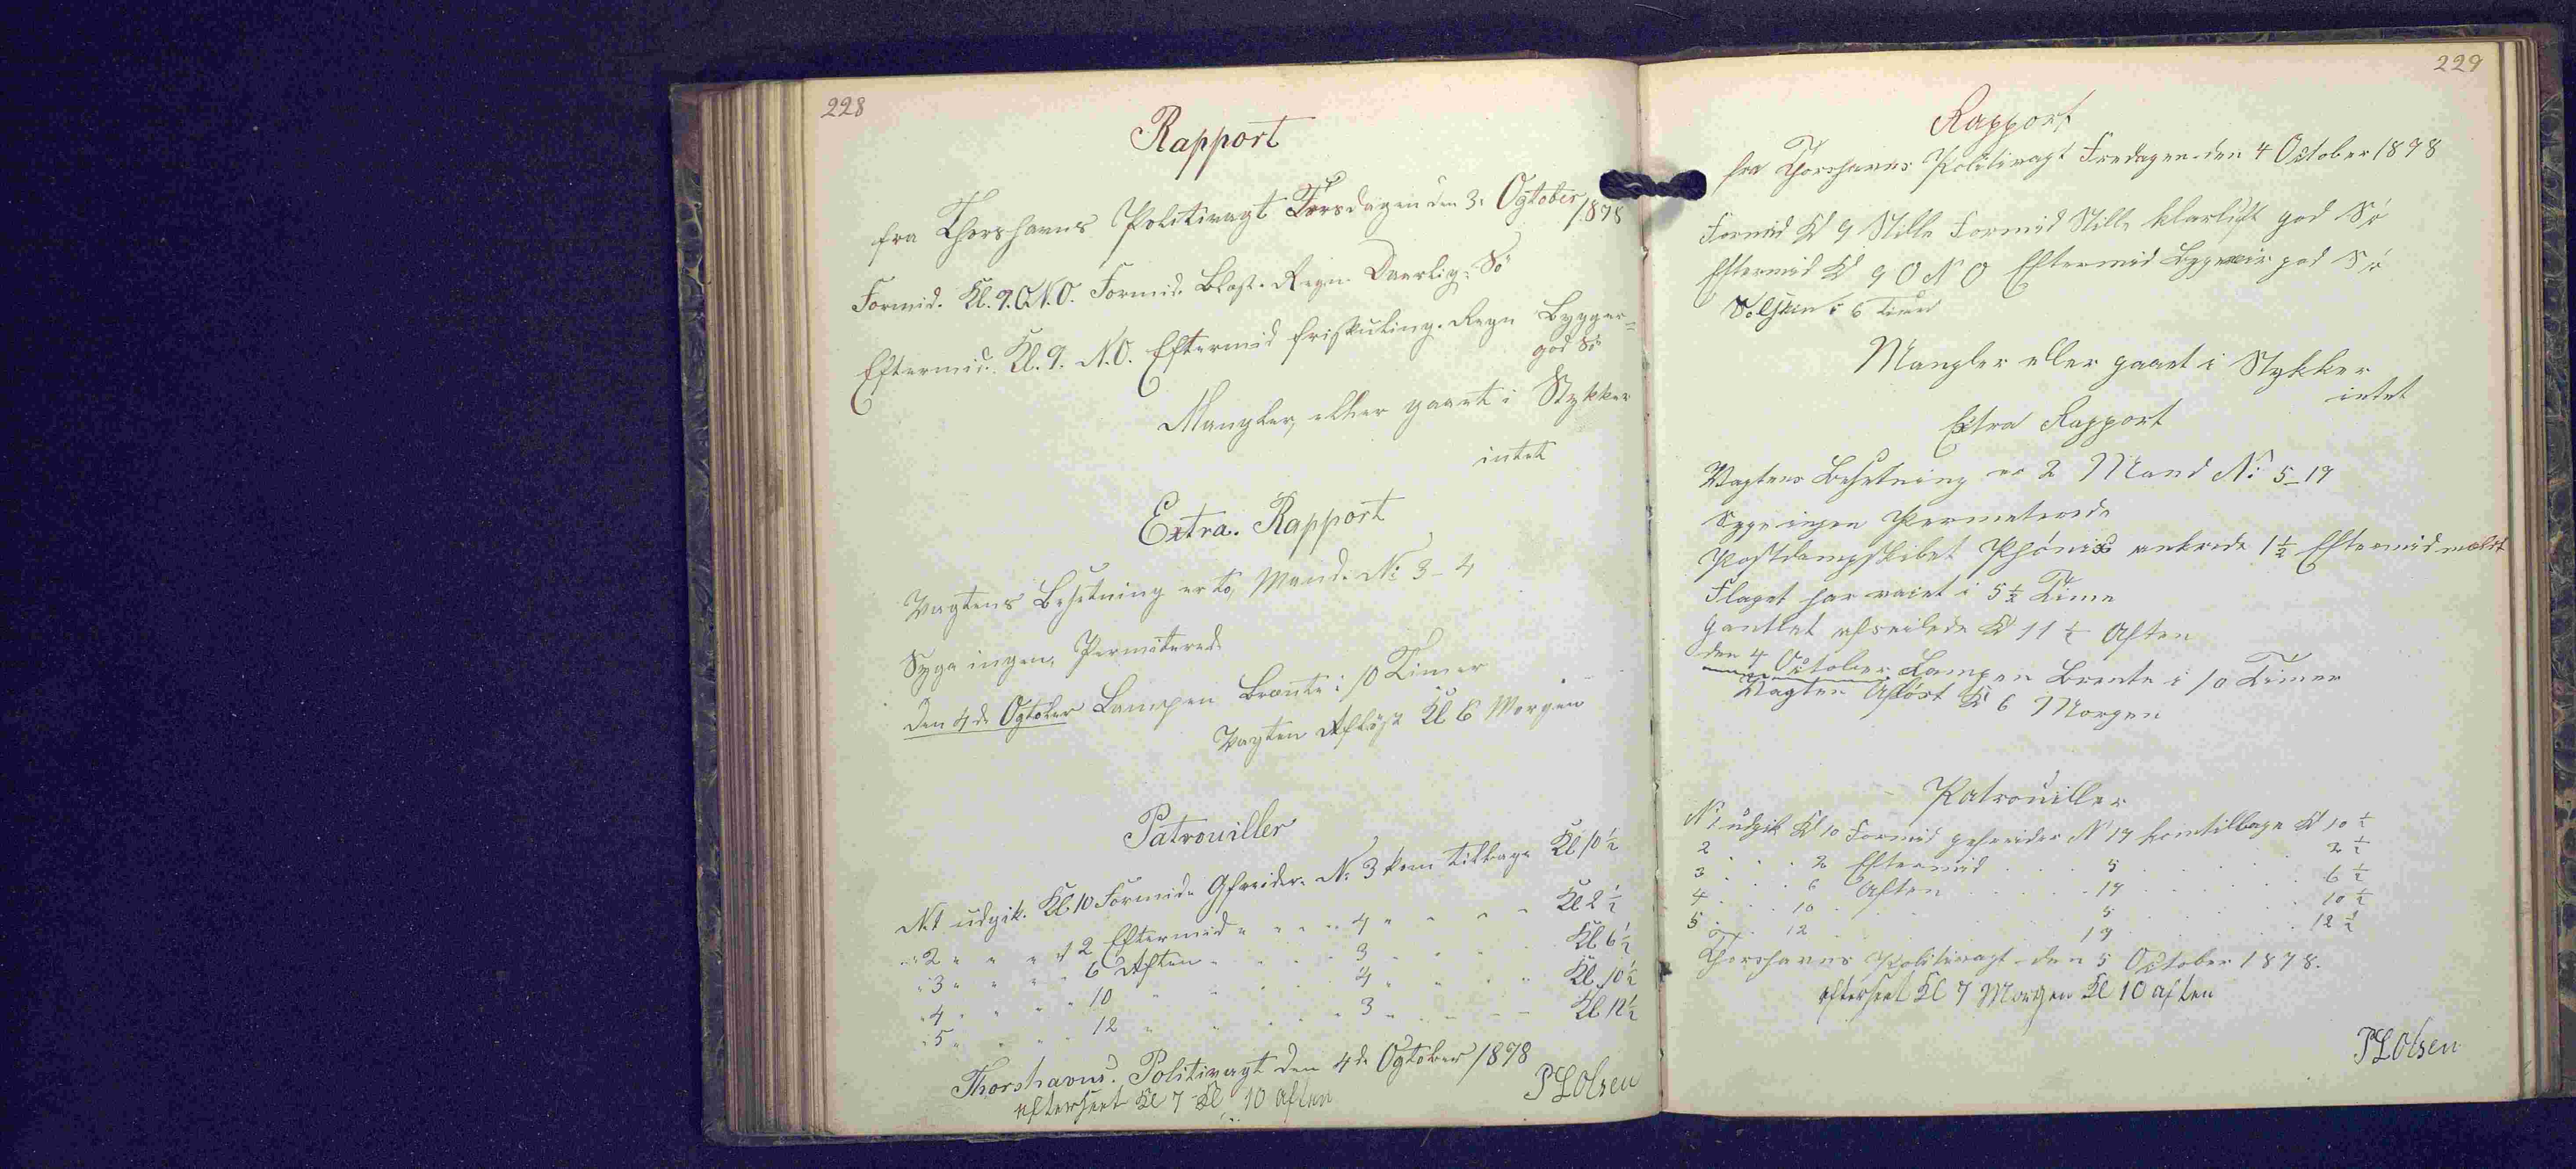 228
Rapport
fra Thorshavns Politivagt Torsdagen den 3. Ogtober
1878
Formid. Kl. 9. O.N.O. Formid. Blæst. Regn. Daarlig Sö
Eftermid. Kl. 9. N.O. Eftermid friskuling. Regn Bygger=
god Sö
Mangler, eller gaaet i Stykker
intet
Extra. Rapport
Vagtens Besetning er to, Mand. No 3 - 4
Syge ingen, Permiterede
Den 4de Ogtober Lampen Brænte i 10 Timer
Vagten Aflöst Kl 6 Morgen
Patrouiller
No 1 udgik. Kl. 10 Formid. Gefreider. No 3 kom tilbage Kl 10 1/2
" 2 " " " 2 Eftermid " " " 4 " " " " Kl 2 1/2
" 3 " " " 6 Aften " " " 3 " " " Kl 6 1/2
" 4 " " " 10 " " " 4 " " " Kl. 10 1/2
" 5 " " " 12 " " " 3 " " " Kl 12 1/2
Thorshavns. Politivagt den 4de Ogtober 1878
efterseet Kl 7 Kl 10 aften
PLOlsen
229
Rapport
fra Thorshavns Politivagt Fredagen den 4 October 1878
Formid Kl 9 Stille Formid Stille klarluft god Sö
Eftermid Kl 9 O N O Eftermid Bygeveir god Sö
Solskin i 6 Timer
Mangler eller gaaet i Stykker
intet
Extra Rapport
Vagtens Besetning er 2 Mand No 5 - 19
Syge ingen Permeterede
Postdampskibet Phönix ankrede 1 1/2 Eftermid
Flaget har vaiet i 5 1/2 Time
afseilede Kl 11 1/2 Aften
den 4 October Lampen Brente i 10 Timer
Vagten Aflöst Kl 6 Morgen
Patrouiller
No 1 udgik Kl 10 Formid gefreider No 19 kom tilbage Kl 10 1/2
2 . . . 2 Eftermid . . . 5 . . . 2 1/2
3 . . . 6 Aften . . . 19 . . . 6 1/2
4 . . . 10 . . . 5 . . . 10 1/2
5 . . . 12 . . . 19 . . . 12 1/2
Thorshavns Politivagt den 5 October 1878.
efterseet Kl 7 Morgen Kl 10 aften
PLOlsen